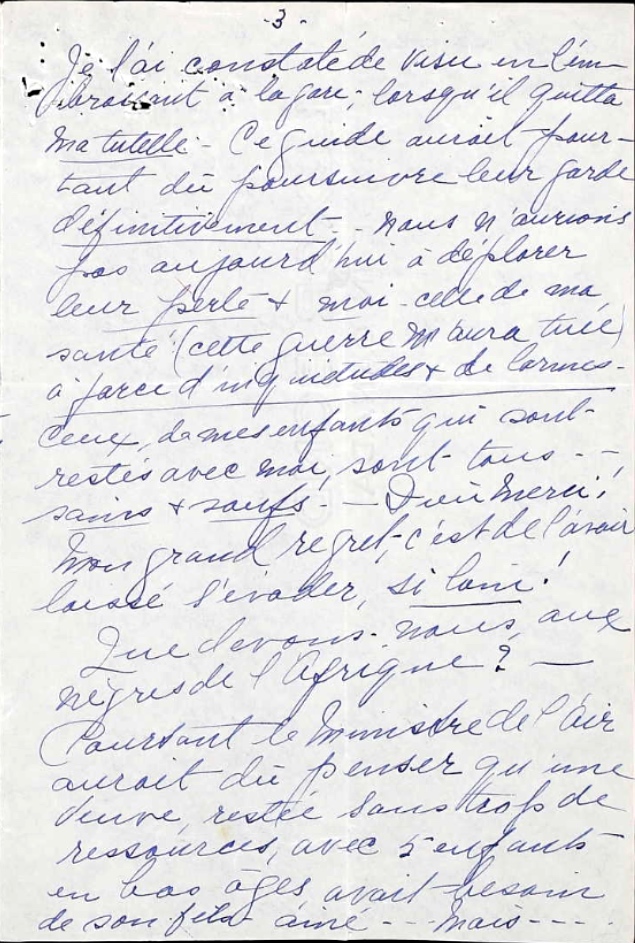 -3-
Je l'ai constaté de visu en l'em-
brassant à la gare, lorsqu'il quitta
ma tutelle - Ce guide aurait pour-
tant dû poursuivre leur garde
définitivement - nous n'aurions
pas aujourd'hui à déplorer
leur perte + moi - celle de ma
santé (cette guerre m'aura tuée)
à force d'inquiétudes + de larmes -
Ceux, de mes enfants qui sont
restés avec moi, sont tous - -
sains + saufs - Dieu merci !
Mon grand regret, c'est de l'avoir
laissé s'évader, si loin !
Que devons-nous, aux
nègres de l'Afrique ? -
Pourtant le Ministre de l'Air
aurait dû penser qu'une
Veuve, restée sans trop de
ressources, avec 5 enfants
en bas âges avait besoin
de son fils aîné - - - Mais - - - -